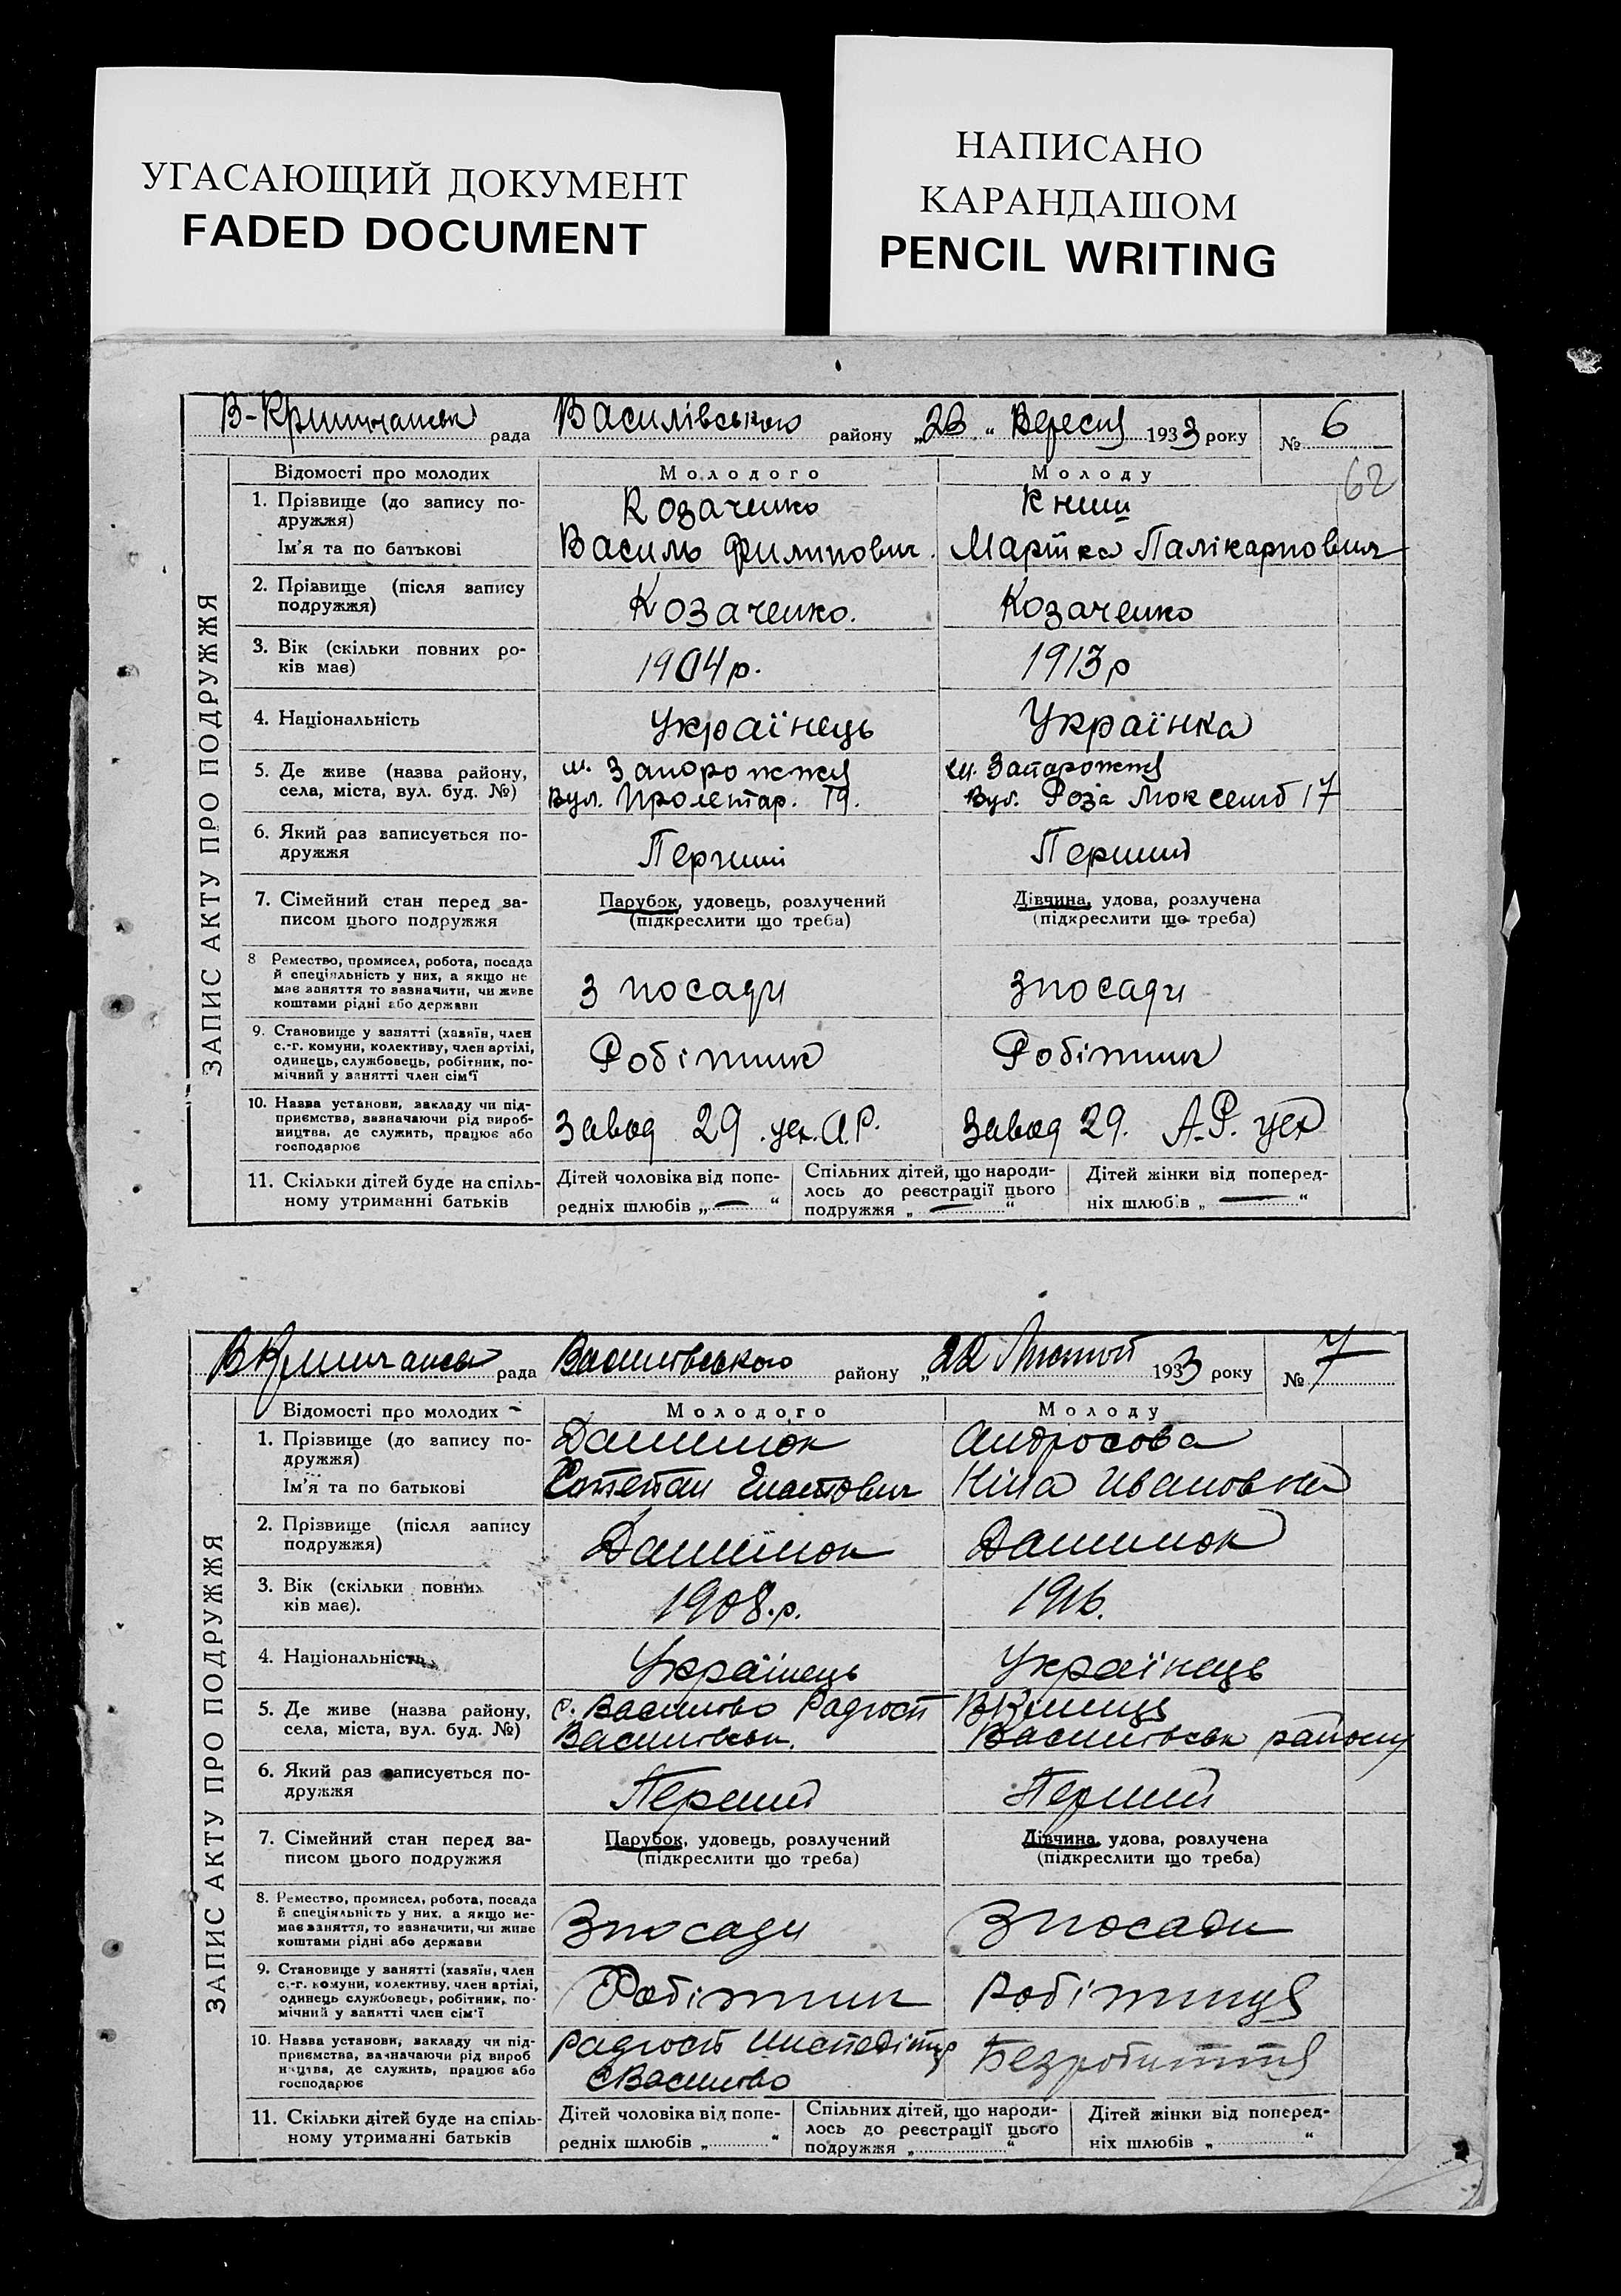 УГАСАЮЩИЙ ДОКУМЕНТ
FADED DOCUMENT
НАПИСАНО
КАРАНДАШОМ
PENCIL WRITING
рада Василівського району „26“ Вересня 1933 року № 6
62
ЗАПИС АКТУ ПРО ПОДРУЖЖЯ
Відомості про молодих Молодого Молоду
1. Прізвище (до запису по-
дружжя) Козаченко Книш
Ім'я та по батькові Василь Филипович. Палікарпович
2. Прізвище (після запису
подружжя) Козаченко. Козаченко
3. Вік (скільки повних ро-
ків має) 1904р. 1913р
4. Національність Українець Українка
5. Де живе (назва району, м. Запорожжя м. Запарожжя
села, міста, вул. буд. №) Вул. Пролетар. 19. Вул. Роза 17
6. Який раз записується по-
дружжя Перший Перший
7. Сімейний стан перед за- Парубок, удовець, розлучений Дівчина, удова, розлучена
писом цього подружжя (підкреслити що треба) (підкреслити що треба)
8 Ремество, промисел, робота, посада
й спеціяльність у них, а якщо не
має заняття то зазначити, чи живе
коштами рідні або держави З посади Зпосади
9. Становище у занятті (хазяїн, член
с.-г. комуни, колективу, член артілі,
одинець, службовець, робітник, по-
мічний у занятті член сім'ї Робітник Робітниц
10. Назва установи, закладу чи під-
приємства, зазначаючи рід вироб-
ництва, де служить, працює або
господарює Завод 29. цех. А.Р. Завод 29. А.Р. цех
11. Скільки дітей буде на спіль-
ному утриманні батьків
Дітей чоловіка від попе-
редніх шлюбів „ — “
Спільних дітей, що народи-
лось до реєстрації цього
подружжя „ — “
Дітей жінки від поперед-
ніх шлюбів „ — “
рада Василівського району „22 Лютий 1933 року № 7
ЗАПИС АКТУ ПРО ПОДРУЖЖЯ
Відомості про молодих Молодого Молоду
1. Прізвище (до запису по-
дружжя) Данилюк Андросова
Ім'я та по батькові Степан Ніна Ивановна
2. Прізвище (після запису
подружжя) Данилюк Данилюк
3. Вік (скільки повних
ків має). 1908.р. 1916.
4. Національність Українець Українець
5. Де живе (назва району, с. Василево Радгосп
села, міста, вул. буд. №) Василівськ. Василівськ району
6. Який раз записується по-
дружжя Перший Перший
7. Сімейний стан перед за- Парубок, удовець, розлучений Дівчина, удова, розлучена
писом цього подружжя (підкреслити що треба) (підкреслити що треба)
8. Ремество, промисел, робота, посада
й спеціяльність у них, а якщо не-
має заняття, то зазначити, чи живе
коштами рідні або держави Зпосади Зпосади
9. Становище у занятті (хазяїн, член
с.-г. комуни, колективу, член артілі,
одинець службовець, робітник, по-
мічний у занятті член сім'ї Робітник Робітниця
10. Назва установи, закладу чи під-
приємства, зазначаючи рід вироб
ництва, де служить, працює або
господарює Радгосп с Василево Безробіття
11. Скільки дітей буде на спіль-
ному утриманні батьків
Дітей чоловіка від попе-
редніх шлюбів „ “
Спільних дітей, що народи-
лось до реєстрації цього
подружжя „ “
Дітей жінки від поперед-
ніх шлюбів „ “